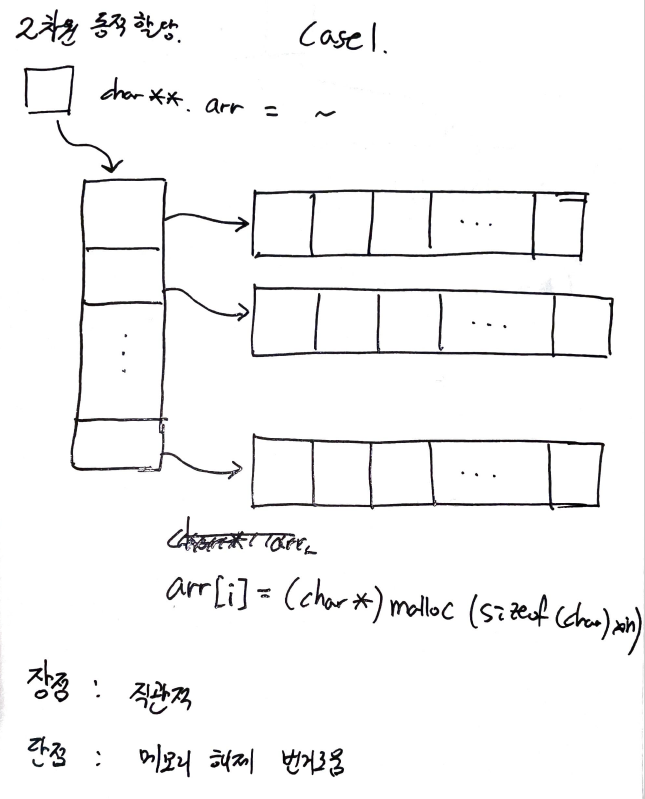 2차원 동적할당. Case 1.
char**. arr = ~
...
...
...
...
arr[i] = (char*) malloc (sizeof(char)*n)
장점 : 직관적
단점 : 메모리 해제 번거로움